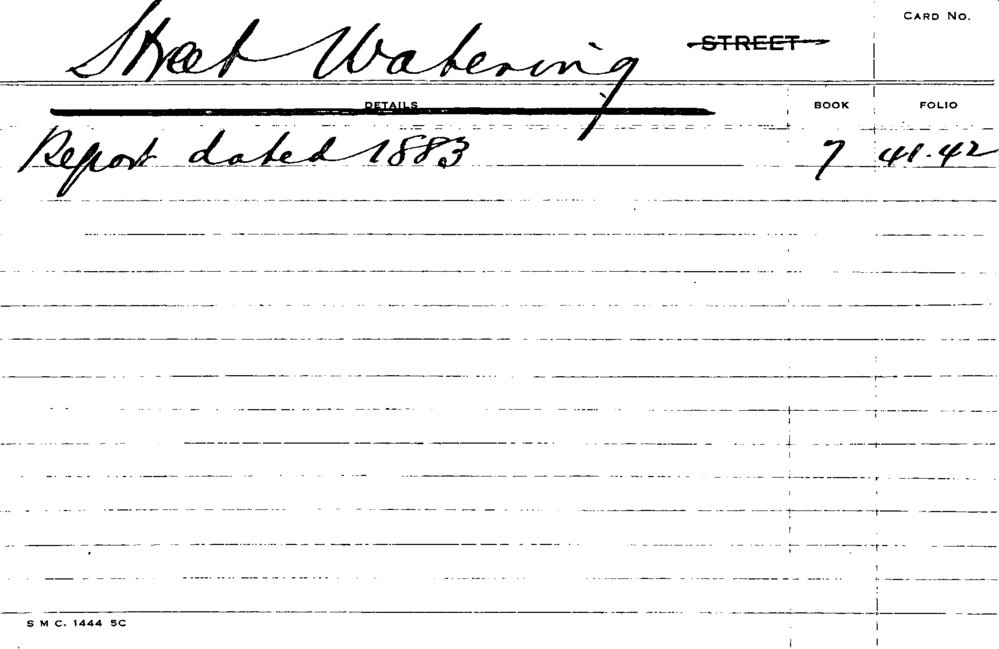 Street Watering STREET CARD NO.
DETAILS BOOK FOLIO
Report dated 1883 7 41.42
S M C. 1444 5C